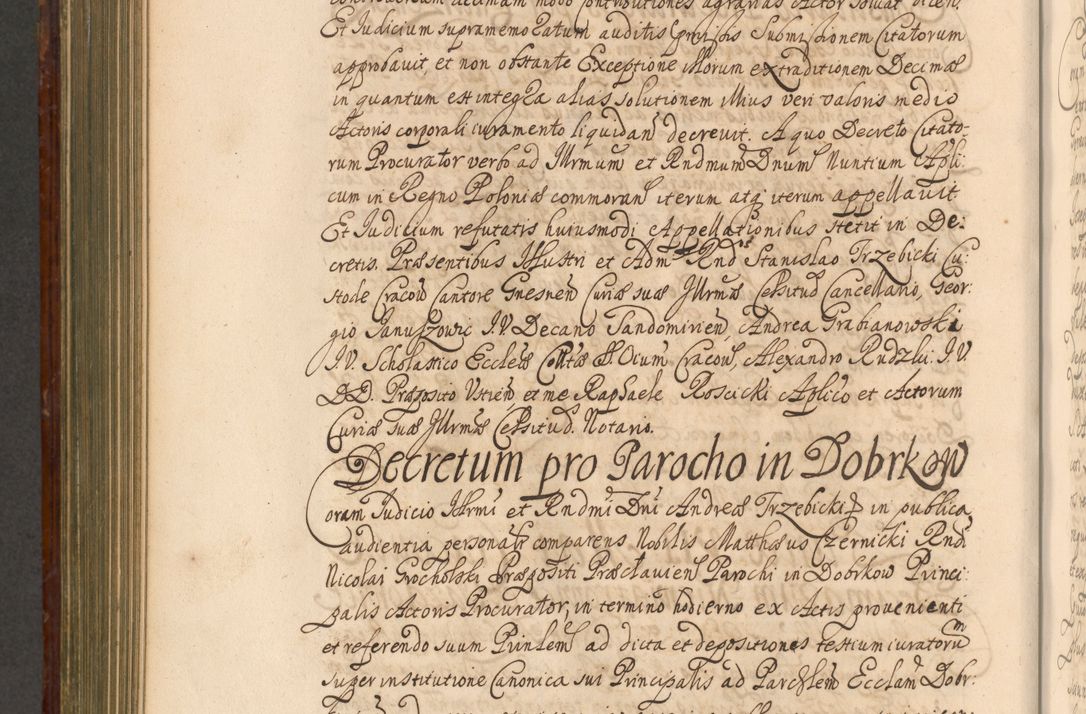 controversum decimam modo contributiones agrarias Actor solvat dicen.
Et Iudicium supramemoratum auditis præmissis Submissionem Citatorum
approbavit, et non obstante Exceptione illorum extraditionem Decimæ
in quantum est integra alias solutionem illius veri valoris medio
Actoris corporali iuramento liquidan decrevit. A quo Decreto Citato-
rum Procurator verbo ad Illrmum et Rndmum Dnum Nuntium Apli:
cum in Regno Poloniæ commoran iterum atq iterum appellavit.
Et Iudicium refutatis huiusmodi Appellationibus stetit in De:
cretis. Præsentibus Illustri et Adm Rndis Stanislao Trzebicki Cu:
stode Cracov Cantore Gnesnen Curiæ suæ Illrmæ Celsitud Cancellario, Geor:
gio Januszowic I.V. Decano Sandomirien, Andrea Grabianowski
I.V. Scholastico Eccleæ Colltæ SS Oium Cracov, Alexandro Rudzki I.V.
DD. Præposito Ustien, et me Raphaele Roscicki Aplico et Actorum
Curiæ suæ Illrmæ Celsitud. Notario.
Decretum pro Parocho in Dobrkow
Coram Iudicio Illrmi et Rndmi Dni Andreæ Trzebicki in publica
audientia personalr comparens Nobilis Matthæus Czernicki Rndi
Nicolai Grocholski Præpositi Præclavien Parochi in Dobrkow Princi:
palis Actoris Procurator, in termino hodierno ex Actis provenienti
et referendo suum Prinlem ad dicta et depositiones testium iuratorum
super institutione Canonica sui Principalis ad Parchlem Ecclam Dobr: